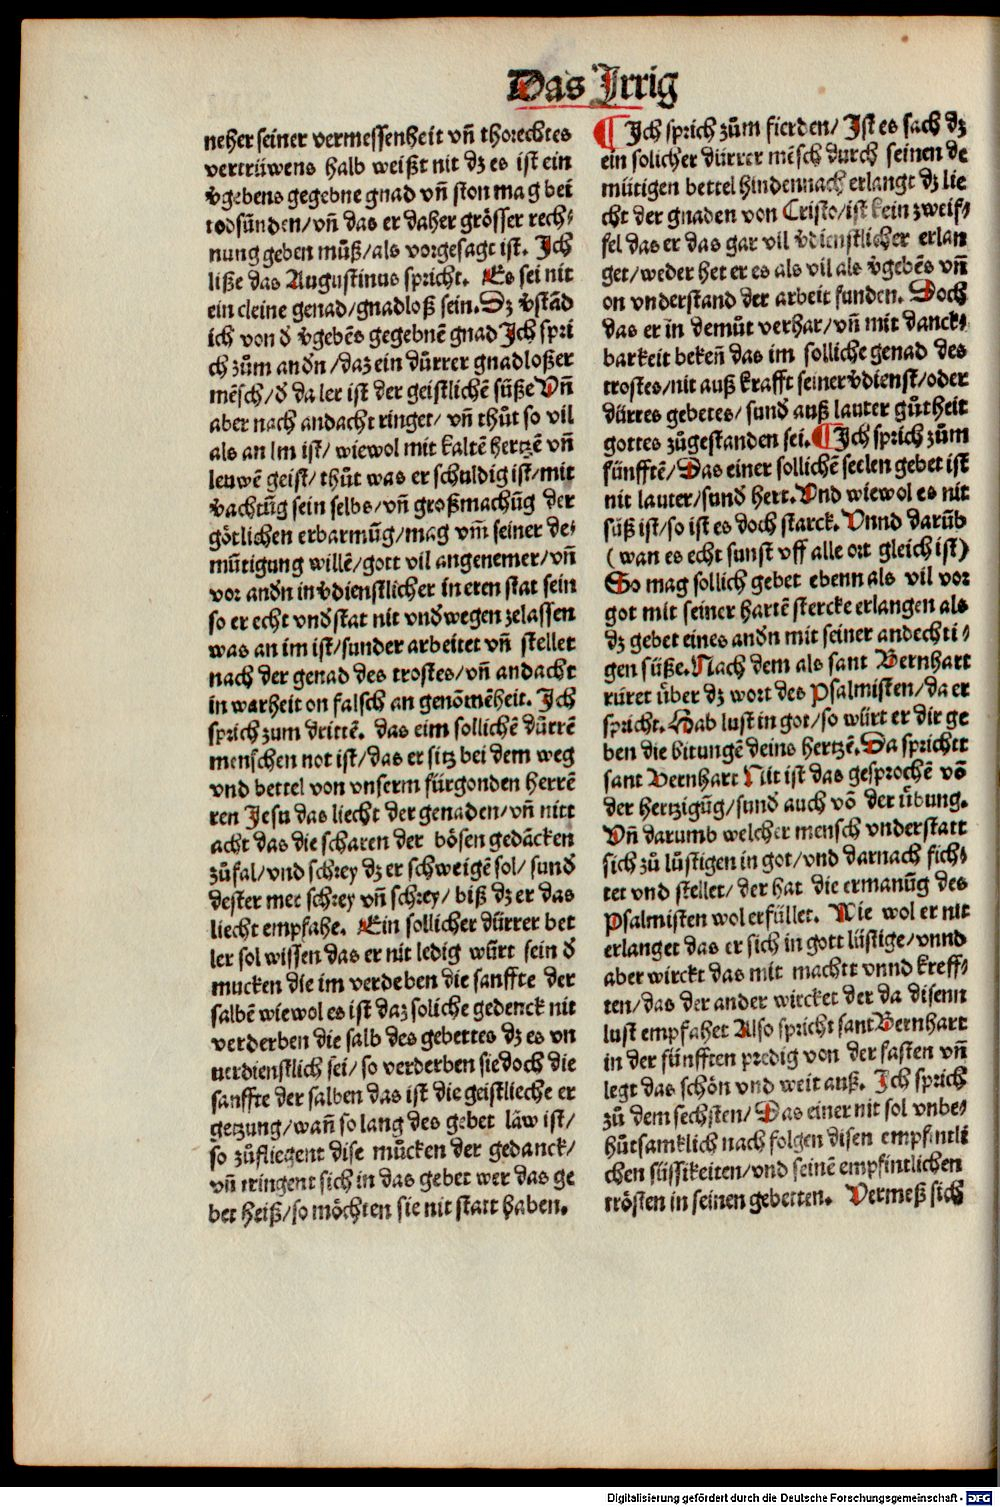 Das Jrrig
neher seiner vermessenheit vn̄ thorechtes
vertrüwens halb weißt nit dz es ist ein
v̄gebens gegebne gnad vn̄ ston mag bei
todsünden/vn̄ das er daher grösser rech⸗
nung geben můß/als vorgesagt ist. Jch
liße das Augustinus spricht. Es sei nit
ein cleine genad/gnadloß sein. Dz v̄stād
ich von d̄ v̄gebēs gegebnē gnad Jch spri
ch zům andn̄ /daz ein dürrer gnadloßer
mēsch/d̄ da ler ist der geistlichē süße Vn̄
aber nach andacht ringet/ vn̄ thůt so vil
als an im ist/ wiewol mit kaltē hertzē vn̄
leuwē geist/ thůt was er schuldig ist/mit
v̄achtūg sein selbs/vn̄ großmachūg der
götlichen erbarmūg/mag vm̄ seiner de⸗
mütigung willē/gott vil angenemer/vn̄
vor andn̄ in v̄dienstlicher in eren stat sein
so er echt vnd̄stat nit vnd̄wegen zelassen
was an im ist/sunder arbeitet vn̄ stellet
nach der genad des trostes/vn̄ andacht
in warheit on falsch an genōmēheit. Jch
sprich zum drittē. das eim sollichē dürrē
menschen not ist/das er sitz bei dem weg
vnd bettel von vnserm fürgonden herrē
ren Jesu das liecht der genaden/vn̄ nitt
acht das die scharen der bösen gedācken
zůfal/vnd schrey dz er schweigē sol/ sund̄
dester mee schrey vn̄ schrey/ biß dz er das
liecht empfahe. Ein sollicher dürrer bet
ler sol wissen das er nit ledig würt sein d̄
mucken die im verdeben die sanffte der
salbē wiewol es ist daz soliche gedenck nit
verderben die salb des gebettes dz es vn
uerdienstlich sei/ so verderben sie doch die
sanffte der salben das ist die geistlieche er
getzung/wan̄ so lang des gebet läw ist/
so zůfliegent dise mucken der gedanck/
vn̄ tringent sich in das gebet wer das ge
bet heiß/so möchten sie nit statt haben.
¶ Jch sprich zům fierden/ Jst es sach dz
ein solicher dürrer mēsch durch seinen de
mütigen bettel hindennach erlangt dz lie
cht der gnaden von Cristo/ist kein zweif⸗
fel das er das gar vil v̄dienstlicher erlan
get/weder het er es als vil als v̄gebēs vn̄
on vnderstand der arbeit funden. Doch
das er in demůt verhar/vn̄ mit danck⸗
barkeit beken̄ das im solliche genad des
trostes/nit auß krafft seiner v̄dienst/oder
dürres gebetes/ sund̄ auß lauter gůtheit
gottes zůgestanden sei. ¶ Jch sprich zům
fünfftē/Das einer sollichē seelen gebet ist
nit lauter/sund̄ hert. Vnd wiewol es nit
süß ist/so ist es doch starck. Vnnd darūb
(wan es echt sunst vff alle ort gleich ist)
So mag sollich gebet ebenn als vil vor
got mit seiner hartē stercke erlangen als
dz gebet eines andn̄ mit seiner andechti⸗
gen süße. Nach dem als sant Bernhart
rüret über dz wort des Psalmisten/da er
spricht. Hab lust in got/so würt er dir ge
ben die bitungē deins hertzē. Da sprichtt
sant Bernhart Nit ist das gesprochē vō
der hertzigūg/sund̄ auch vō der übung.
Vn̄ darumb welcher mensch vnderstatt
sich zů lüstigen in got/vnd darnach fich⸗
tet vnd stellet/ der hat die ermanūg des
Psalmisten wol erfüllet. Wie wol er nit
erlanget das er sich in gott lüstige/vnnd
aber wirckt das mit machtt vnnd kreff⸗
ten/das der ander wircket der da disenn
lust empfahet Also spricht sant Bernhart
in der fünfften predig von der fasten vn̄
legt das schön vnd weit auß. Jch sprich
zů dem sechsten/ Das einer nit sol vnbe⸗
hůtsamklich nach folgen disen empfintli
chen süssikeiten/vnd seinē empfintlichen
trösten in seinen gebetten. Vermeß sich
Digitalisierung gefördert durch die Deutsche Forschungsgemeinschaft - DFG